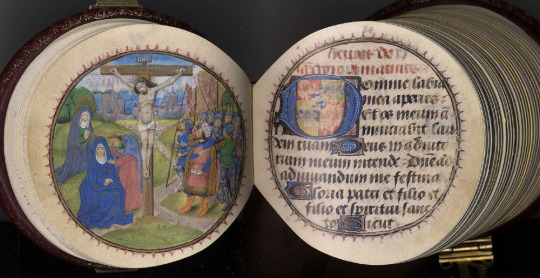 heures de
matines
Domine labia
mea aperies
Et os meum a
nunciabit lau
tuam Deus in adiuto
rium meum intende Dne ad
adiuvandum me festina
Gloria patri et filio et
filio et spiritui sanc
to Sicut